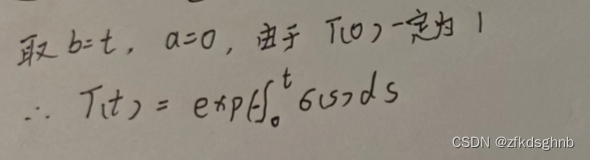 取 b=t, a=0, 由于 T(0)一定为 1
∴ T(t) = exp(-∫₀ᵗ σ(s)ds
CSDN @zfkdsghnb